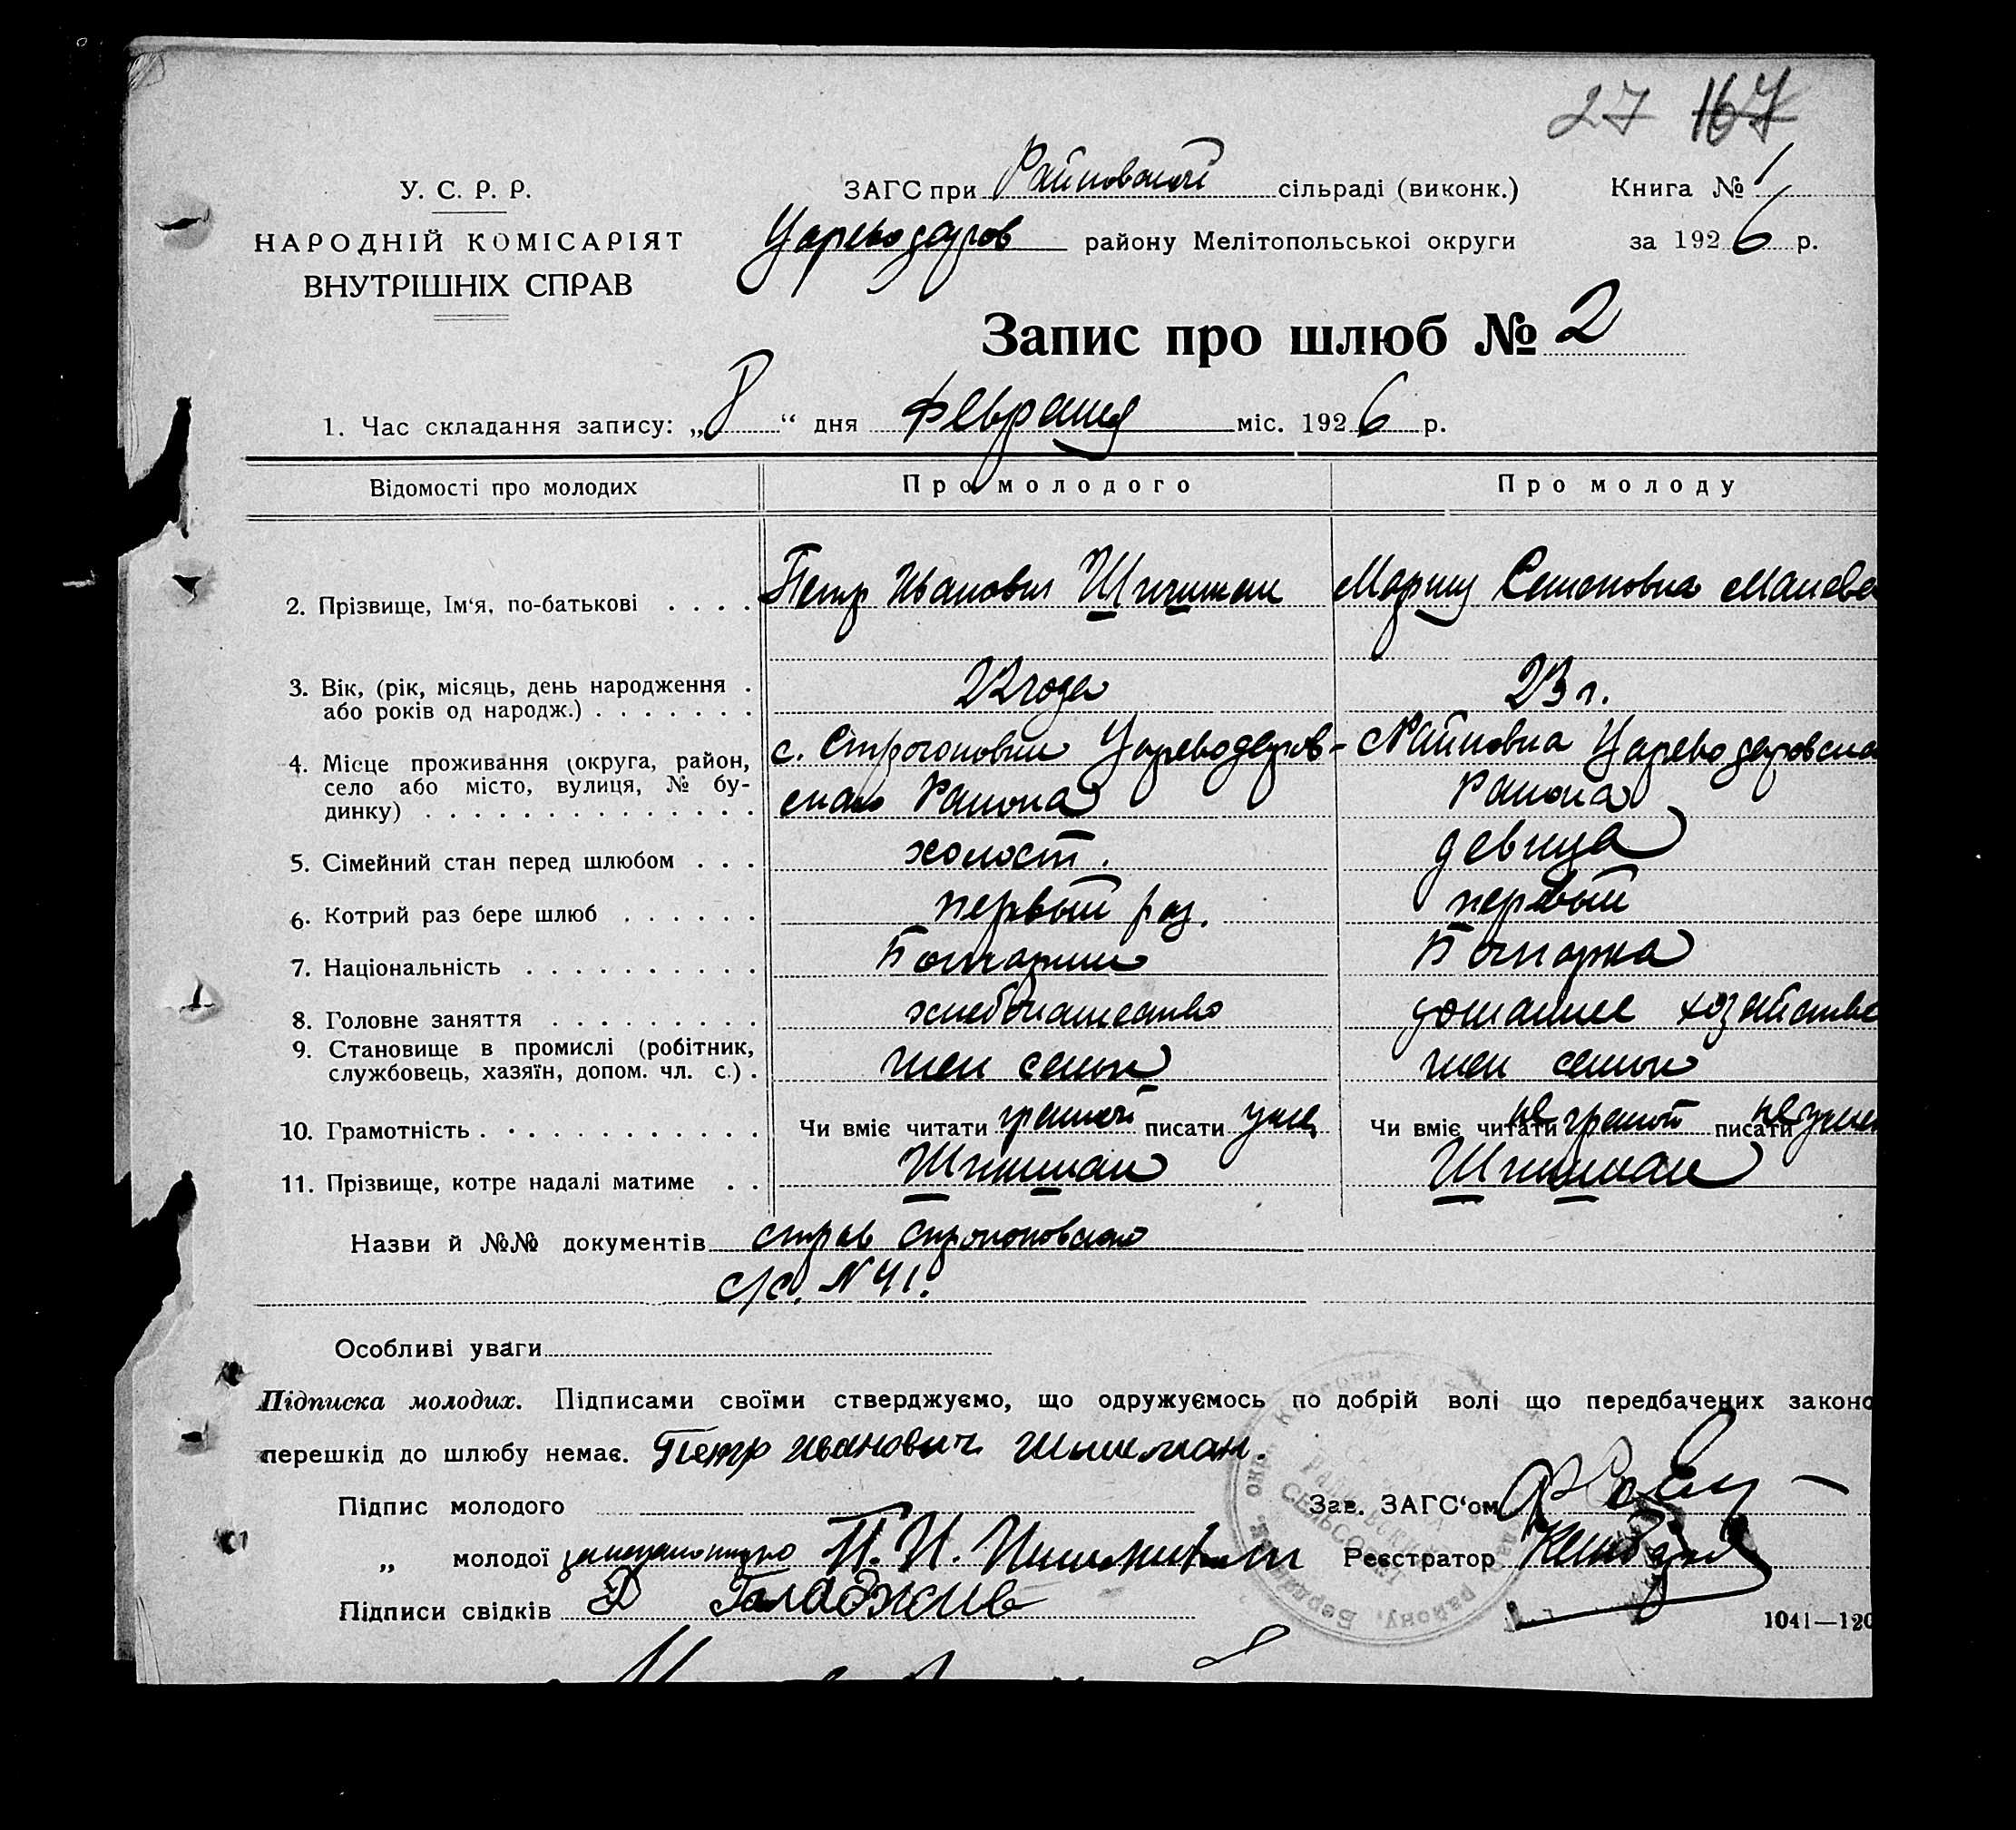 27 167
У. С. Р. Р.
НАРОДНІЙ КОМІСАРІЯТ
ВНУТРІШНІХ СПРАВ
ЗАГС при Райновской сільраді (виконк.) Книга № 1
Цареводаров району Мелітопольської округи за 1926 р.
Запис про шлюб № 2
1. Час складання запису: „8“ дня февраля міс. 1926 р.
Відомості про молодих Про молодого Про молоду
2. Прізвище, Ім‘я, по-батькові . . . . Петр Иванович Шишман Мария Семеновна
3. Вік, (рік, місяць, день народження .
або років од народж.) . . . . . . . 22 года 23 г.
4. Місце проживання (округа, район,
село або місто, вулиця, № бу-
динку) . . . . . . . . . . . . . .
с. Строгоновки Цареводаров-
скаго Района
Райновка Цареводаровска
Района
5. Сімейний стан перед шлюбом . . . холост. девица
6. Котрий раз бере шлюб . . . . . . первый раз. первый
7. Національність . . . . . . . . . . Болгарин Болгарка
8. Головне заняття . . . . . . . . . хлебопашество домашнее хозяйстве
9. Становище в промислі (робітник,
службовець, хазяїн, допом. чл. с.) . член семьи член семьи
10. Грамотність . . . . . . . . . . . . Чи вміє читати писати Чи вміє читати писати
11. Прізвище, котре надалі матиме . . Шишман Шишман
Назви й №№ документів справ Строгоновскаго
с/с. N 41.
Особливі уваги
Підписка молодих. Підписами своїми стверджуємо, що одружуємось по добрій волі що передбачених законо
перешкід до шлюбу немає. Петр Иванович Шишман.
Підпис молодого Зав. ЗАГС‘ом
„ молодої П. И. Реєстратор
Підписи свідків Д Галаджив
1041—120
СЕЛЬСОВЕТ
району, Бердянськ. окр.